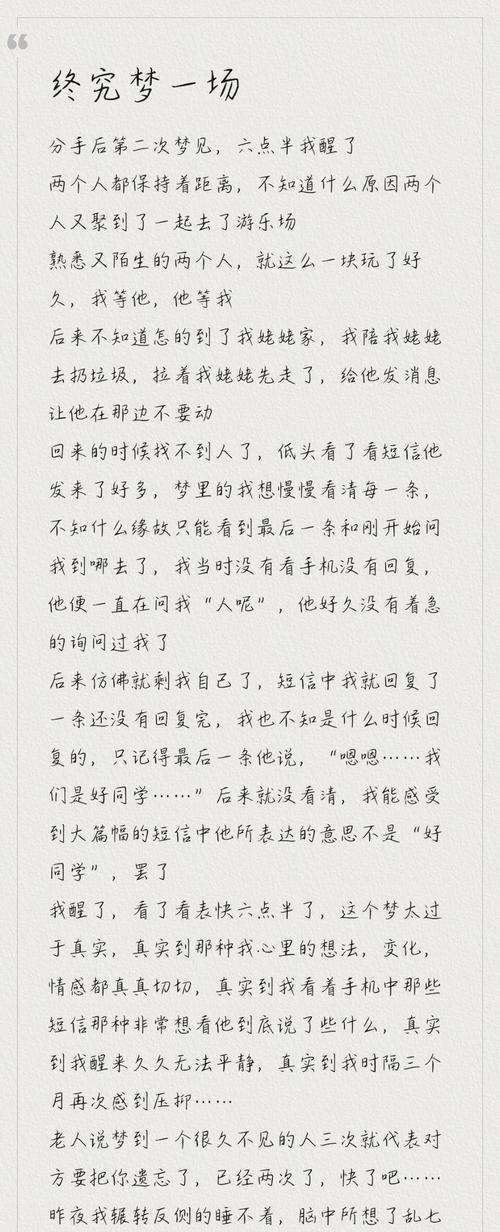 终究梦一场
分手后第二次梦见，六点半我醒了
两个人都保持着距离，不知道什么原因两个
人又聚到了一起去了游乐场
熟悉又陌生的两个人，就这么一块玩了好
久，我等他，他等我
后来不知道怎的到了我姥姥家，我陪我姥姥
去扔垃圾，拉着我姥姥先走了，给他发消息
让他在那边不要动
回来的时候找不到人了，低头看了看短信他
发来了好多，梦里的我想慢慢看清每一条，
不知什么缘故只能看到最后一条和刚开始问
我到哪去了，我当时没有看手机没有回复，
他便一直在问我“人呢”，他好久没有着急
的询问过我了
后来仿佛就剩我自己了，短信中我就回复了
一条还没有回复完，我也不知是什么时候回
复的，只记得最后一条他说，“嗯嗯……我
们是好同学……”后来就没看清，我能感受
到大篇幅的短信中他所表达的意思不是“好
同学”，罢了
我醒了，看了看表快六点半了，这个梦太过
于真实，真实到那种我心里的想法，变化，
情感都真真切切，真实到我看着手机中那些
短信那种非常想看他到底说了些什么，真实
到我醒来久久无法平静，真实到我时隔三个
月再次感到压抑……
老人说梦到一个很久不见的人三次就代表对
方要把你遗忘了，已经两次了，快了吧……
昨夜我辗转反侧的睡不着，脑中所想了乱七